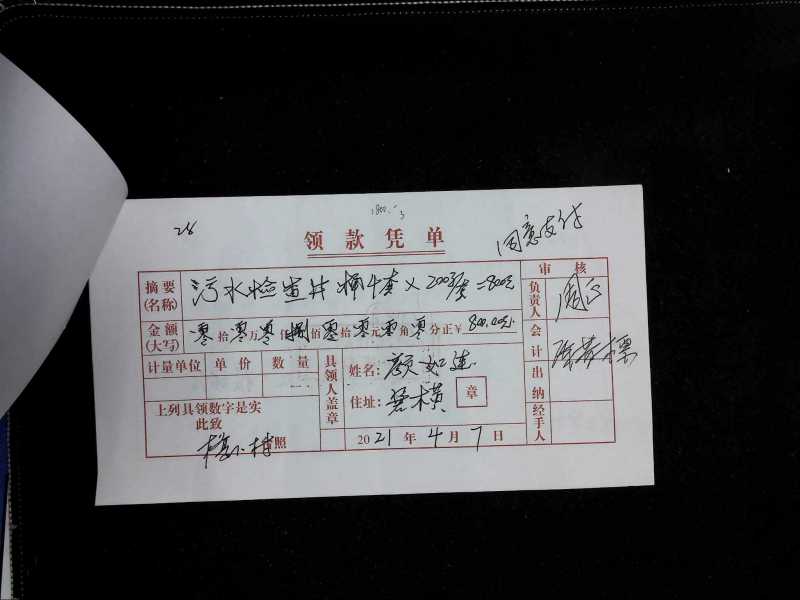 26
领款凭单
同意支付
审核
摘要(名称) 污水检查井桶4套×200元/套=800元
负责人
金额(大写) 零拾零万零仟捌佰零拾零元零角零分正¥800.00元
计量单位 单价 数量
具领人盖章
姓名: 颜如连
住址:
章
会计
出纳
上列具领数字是实
此致
照
2021年4月7日
经手人